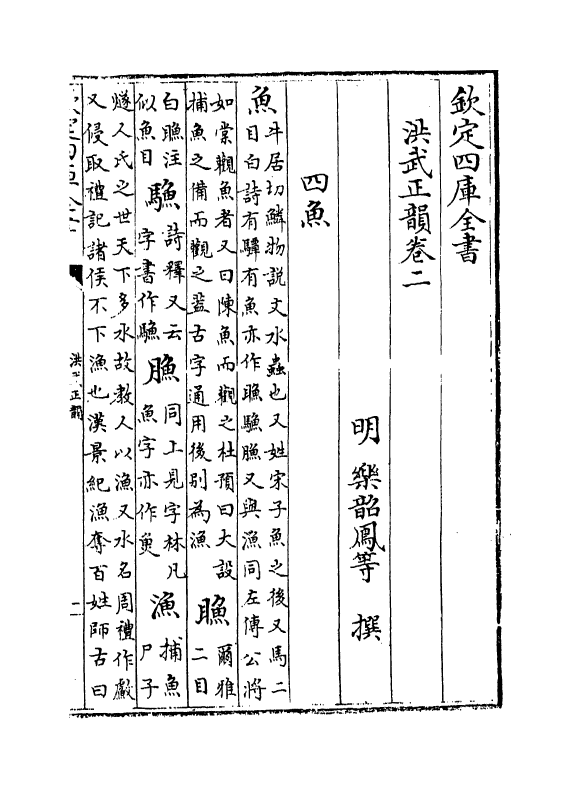 欽定四庫全書
洪武正韻卷二
明 樂韶鳳等 撰
四魚
魚
牛居切鱗物說文水蟲也又姓宋子魚之後又馬二
目白詩有驔有魚亦作䁩䮙𦟇又與漁同左傳公將
如棠觀魚者又曰陳魚而觀之杜預曰大設
捕魚之備而觀之葢古字通用後别為漁
䁩
爾雅
二目
白䁩注
似魚目
䮙
詩釋又云
字書作䮙
𦟇
同上見字林凡
魚字亦作𩵋
漁
捕魚
尸子
燧人氏之世天下多水故教人以漁又水名周禮作
又侵取禮記諸侯不下漁也漢景紀漁奪百姓師古曰
洪武正韻
二